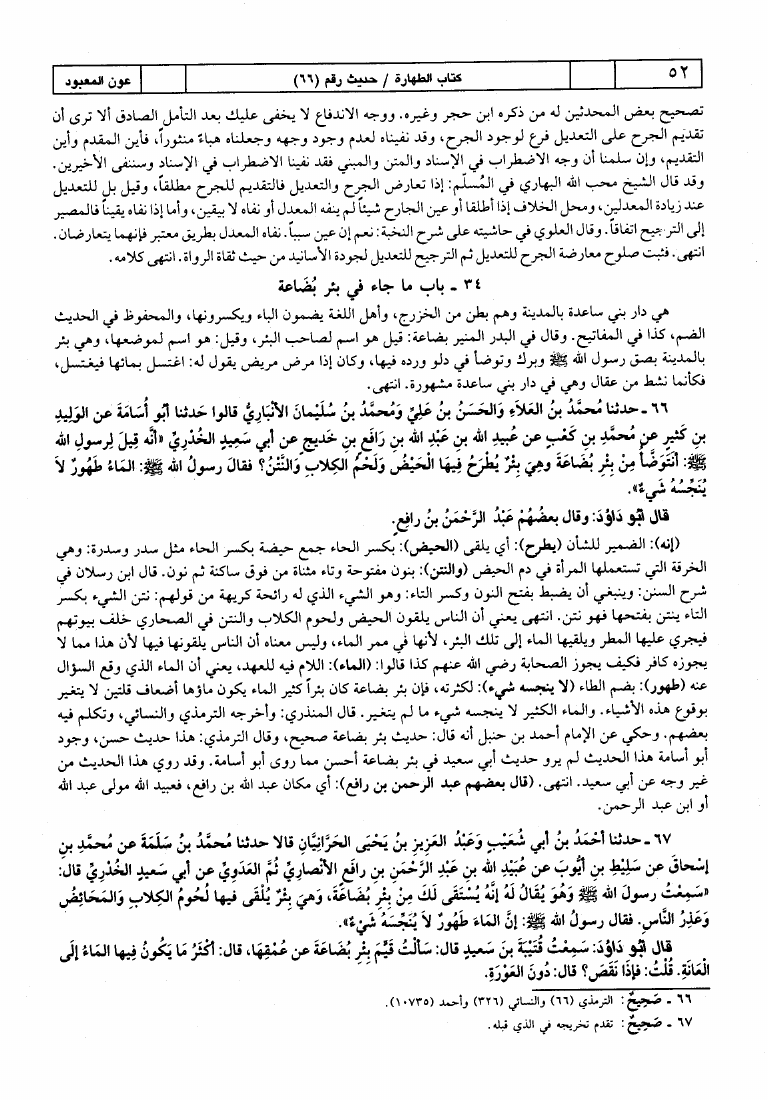 ٥٢ كتاب الطهارة / حديث رقم (٦٦) عون المعبود
تصحيح بعض المحدثين له من ذكره ابن حجر وغيره. ووجه الاندفاع لا يخفى عليك بعد التأمل الصادق ألا ترى أن
تقديم الجرح على التعديل فرع لوجود الجرح، وقد نفيناه لعدم وجود وجهه وجعلناه هباءً منثوراً، فأين المقدم وأين
التقديم، وإن سلمنا أن وجه الاضطراب في الإسناد والمتن والمبني فقد نفينا الاضطراب في الإسناد وسننفى الأخيرين.
وقد قال الشيخ محب الله البهاري في المُسلّم: إذا تعارض الجرح والتعديل فالتقديم للجرح مطلقاً، وقيل بل للتعديل
عند زيادة المعدلين، ومحل الخلاف إذا أطلقا أو عين الجارح شيئاً لم ينفه المعدل أو نفاه لا بيقين، وأما إذا نفاه يقيناً فالمصير
إلى الترجيح اتفاقاً. وقال العلوي في حاشيته على شرح النخبة: نعم إن عين سبباً. نفاه المعدل بطريق معتبر فإنهما يتعارضان.
انتهى. فثبت صلوح معارضة الجرح للتعديل ثم الترجيح للتعديل لجودة الأسانيد من حيث ثقاة الرواة. انتهى كلامه.
٣٤ ـ باب ما جاء في بئر بُضَاعة
هي دار بني ساعدة بالمدينة وهم بطن من الخزرج، وأهل اللغة يضمون الباء ويكسرونها، والمحفوظ في الحديث
الضم، كذا في المفاتيح. وقال في البدر المنير بضاعة: قيل هو اسم لصاحب البئر، وقيل: هو اسم لموضعها، وهي بئر
بالمدينة بصق رسول الله ﷺ وبرك وتوضأ في دلو ورده فيها، وكان إذا مرض مريض يقول له: اغتسل بمائها فيغتسل،
فكأنما نشط من عقال وهي في دار بني ساعدة مشهورة. انتهى.
٦٦ ـ حدثنا مُحمَّدُ بنُ العَلاَءِ وَالحَسَنُ بنُ عَلِيٍّ وَمُحمَّدُ بنُ سُلَيْمانَ الأنْبَارِيُّ قالوا حَدثنا أبُو أُسَامَةَ عن الوَلِيدِ
بنِ كَثيرٍ عن مُحمَّدِ بنِ كَعْبٍ عن عُبيدِ الله بنِ عَبْدِ الله بنِ رَافِعِ بنِ خَديجٍ عن أبي سَعِيدٍ الخُدْرِيِّ «أنَّه قِيلَ لِرسولِ الله
ﷺ: أنَتَوَضَّأُ مِنْ بِئْرِ بُضَاعَةَ وَهِيَ بِئْرٌ يُطْرَحُ فِيهَا الْحَيْضُ وَلَحْمُ الكِلابِ وَالنَّتْنُ؟ فقالَ رسولُ الله ﷺ: المَاءُ طَهُورٌ لاَ
يُنَجِّسُهُ شَيءٌ».
قال أبُو دَاوُدَ: وقال بعضُهُمْ عَبْدُ الرَّحْمٰنِ بنُ رافِعٍ.
(إنه): الضمير للشأن (يطرح): أي يلقى (الحيض): بكسر الحاء جمع حيضة بكسر الحاء مثل سدر وسدرة: وهي
الخرقة التي تستعملها المرأة في دم الحيض (والنتن): بنون مفتوحة وتاء مثناة من فوق ساكنة ثم نون. قال ابن رسلان في
شرح السنن: وينبغي أن يضبط بفتح النون وكسر التاء: وهو الشيء الذي له رائحة كريهة من قولهم: نتن الشيء بكسر
التاء ينتن بفتحها فهو نتن. انتهى يعني أن الناس يلقون الحيض ولحوم الكلاب والنتن في الصحاري خلف بيوتهم
فيجري عليها المطر ويلقيها الماء إلى تلك البئر، لأنها في ممر الماء، وليس معناه أن الناس يلقونها فيها لأن هذا مما لا
يجوزه كافر فكيف يجوز الصحابة رضي الله عنهم كذا قالوا: (الماء): اللام فيه للعهد، يعني أن الماء الذي وقع السؤال
عنه (طهور): بضم الطاء (لا ينجسه شيء): لكثرته، فإن بئر بضاعة كان بئراً كثير الماء يكون ماؤها أضعاف قلتين لا يتغير
بوقوع هذه الأشياء. والماء الكثير لا ينجسه شيء ما لم يتغير. قال المنذري: وأخرجه الترمذي والنسائي، وتكلم فيه
بعضهم. وحكي عن الإمام أحمد بن حنبل أنه قال: حديث بئر بضاعة صحيح، وقال الترمذي: هذا حديث حسن، وجود
أبو أسامة هذا الحديث لم يرو حديث أبي سعيد في بئر بضاعة أحسن مما روى أبو أسامة. وقد روي هذا الحديث من
غير وجه عن أبي سعيد. انتهى. (قال بعضهم عبد الرحمن بن رافع): أي مكان عبد الله بن رافع، فعبيد الله مولى عبد الله
أو ابن عبد الرحمن.
٦٧ ـ حدثنا أحْمَدُ بنُ أبي شُعَيْبٍ وَعَبْدُ العَزِيزِ بنُ يَحْيَى الحَرَّانِيَّانِ قالا حدثنا مُحمَّدُ بنُ سَلَمَةَ عن مُحمَّدِ بنِ
إسْحَاقَ عن سَلِيطِ بنِ أيُّوبَ عن عُبَيْدِ الله بنِ عَبْدِ الرَّحْمٰنِ بنِ رَافِعٍ الأنْصارِيِّ ثُمَّ العَدَوِيِّ عن أبي سَعيدٍ الخُدْرِيِّ قال:
«سَمِعْتُ رسولَ الله ﷺ وَهُوَ يُقَالُ لَهُ إنَّهُ يُسْتَقَى لَكَ مِنْ بِئْرِ بُضَاعَةَ، وَهِيَ بِئْرٌ يُلْقَى فيها لُحُومُ الكِلابِ وَالمَحَائِضُ
وَعَذِرُ النَّاسِ. فقال رسولُ الله ﷺ: إنَّ المَاءَ طَهُورٌ لاَ يُنَجِّسُهُ شَيْءٌ».
قال أبُو دَاوُدَ: سَمِعْتُ قُتَيْبَةَ بنَ سَعيدٍ قال: سَألْتُ قَيِّمَ بِئْرِ بُضَاعَةَ عن عُمْقِهَا، قال: أكْثَرُ مَا يَكُونُ فِيها المَاءُ إلَى
الْعَانَةِ. قُلْتُ: فَإذَا نَقَصَ؟ قال: دُونَ العَوْرَةِ.
٦٦ ـ صَحِيحٌ: الترمذي (٦٦) والنسائي (٣٢٦) وأحمد (١٠٧٣٥).
٦٧ ـ صَحِيحٌ: تقدم تخريجه في الذي قبله.